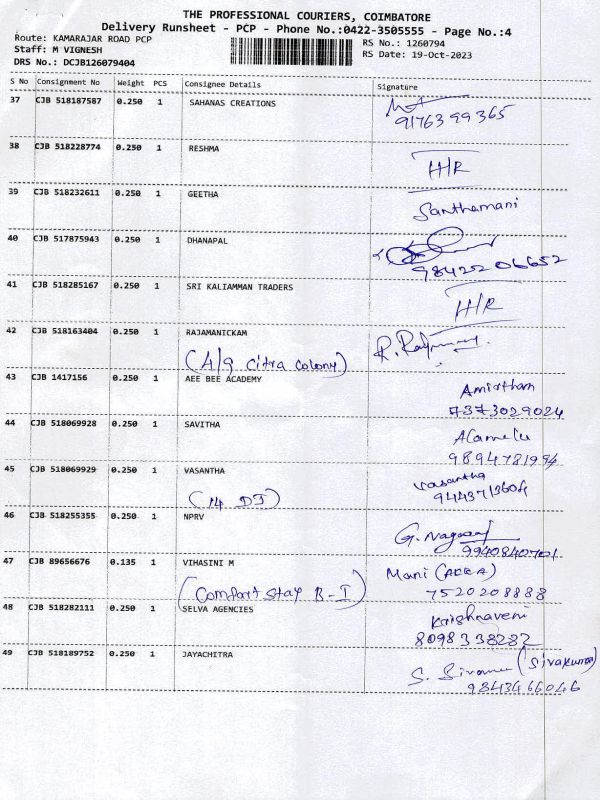 THE PROFESSIONAL COURIERS, COIMBATORE
Delivery Runsheet - PCP - Phone No.:0422-3505555 - Page No.:4
Route: KAMARAJAR ROAD PCP
RS No.: 1260794
Staff: M VIGNESH
RS Date: 19-Oct-2023
DRS No.: DCJB126079404
S No Consignment No Weight PCS Consignee Details Signature
37 CJB 518187587 0.250 1 SAHANAS CREATIONS
9176399365
38 CJB 518228774 0.250 1 RESHMA
H/R
39 CJB 518232611 0.250 1 GEETHA
Santhamani
40 CJB 517875943 0.250 1 DHANAPAL
9842206652
41 CJB 518285167 0.250 1 SRI KALIAMMAN TRADERS
H/R
42 CJB 518163404 0.250 1 RAJAMANICKAM
(4/9 Citra Colony)
43 CJB 1417156 0.250 1 AEE BEE ACADEMY
Amirtham
7373029024
44 CJB 518069928 0.250 1 SAVITHA
Alamelu
9894781994
45 CJB 518069929 0.250 1 VASANTHA
Vasantha
(14 DJ)
46 CJB 518255355 0.250 1 NPRV
G. Nagaraj
9940840701
47 CJB 89656676 0.135 1 VIHASINI M
Mani
(Comfort Stay B-I)
7520208888
48 CJB 518282111 0.250 1 SELVA AGENCIES
Krishnaveni
8098338282
49 CJB 518189752 0.250 1 JAYACHITRA
(Sivakumar)
9843466046